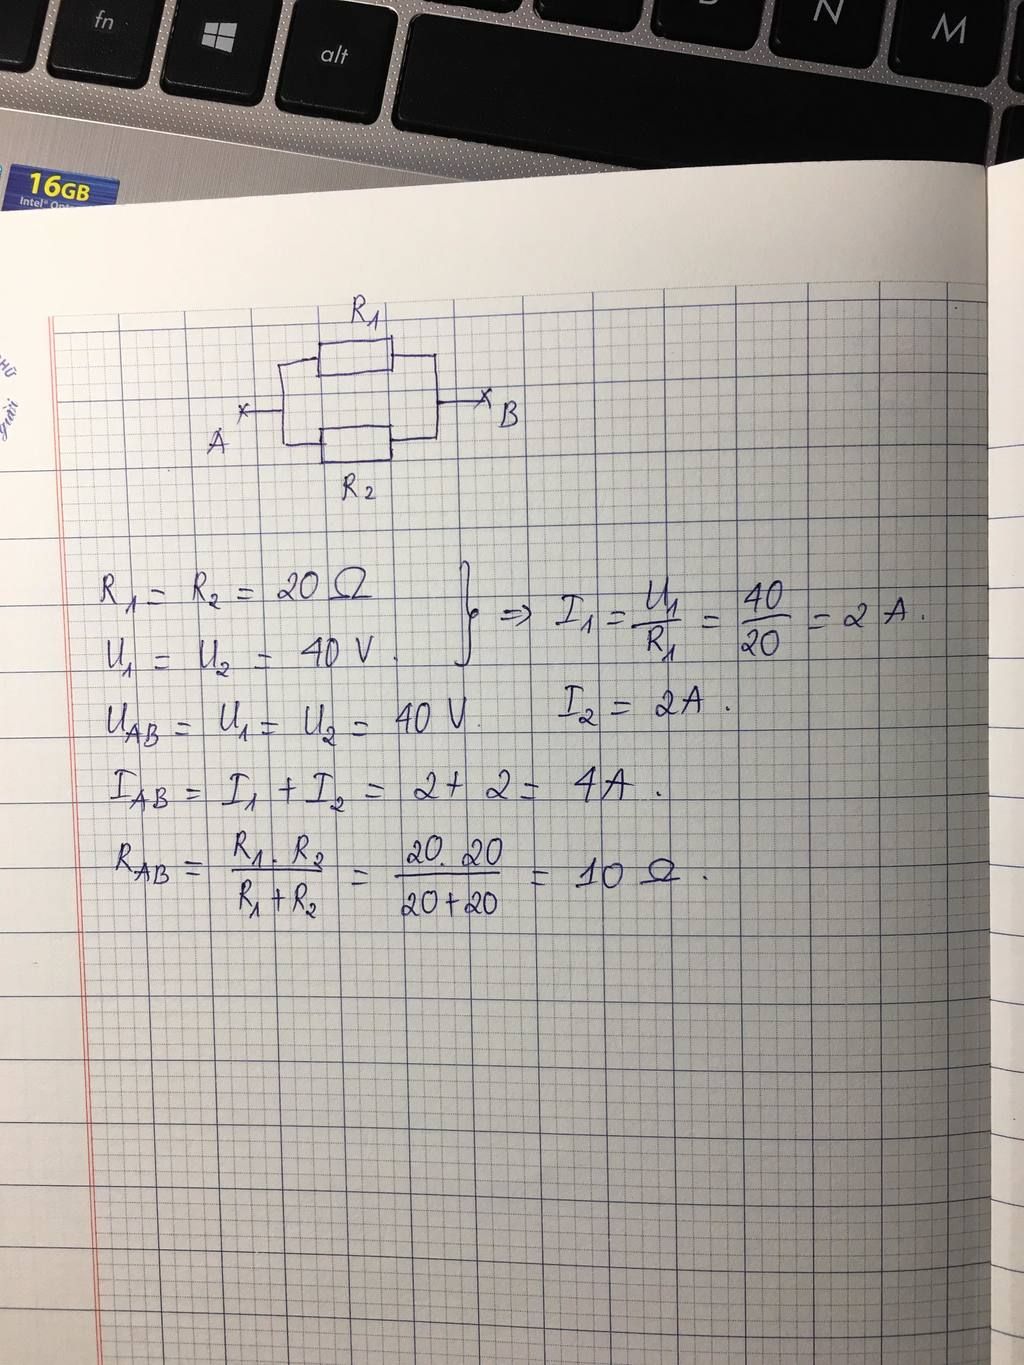 fn
alt
N
M
16GB
R1
A
B
R2
R1 = R2 = 20 Ω
U1 = U2 = 40 V.
} => I1 = U1/R1 = 40/20 = 2 A.
UAB = U1 = U2 = 40 V.
I2 = 2A.
IAB = I1 + I2 = 2 + 2 = 4A.
RAB = R1. R2/R1 + R2 = 20. 20/20 + 20 = 10 Ω.